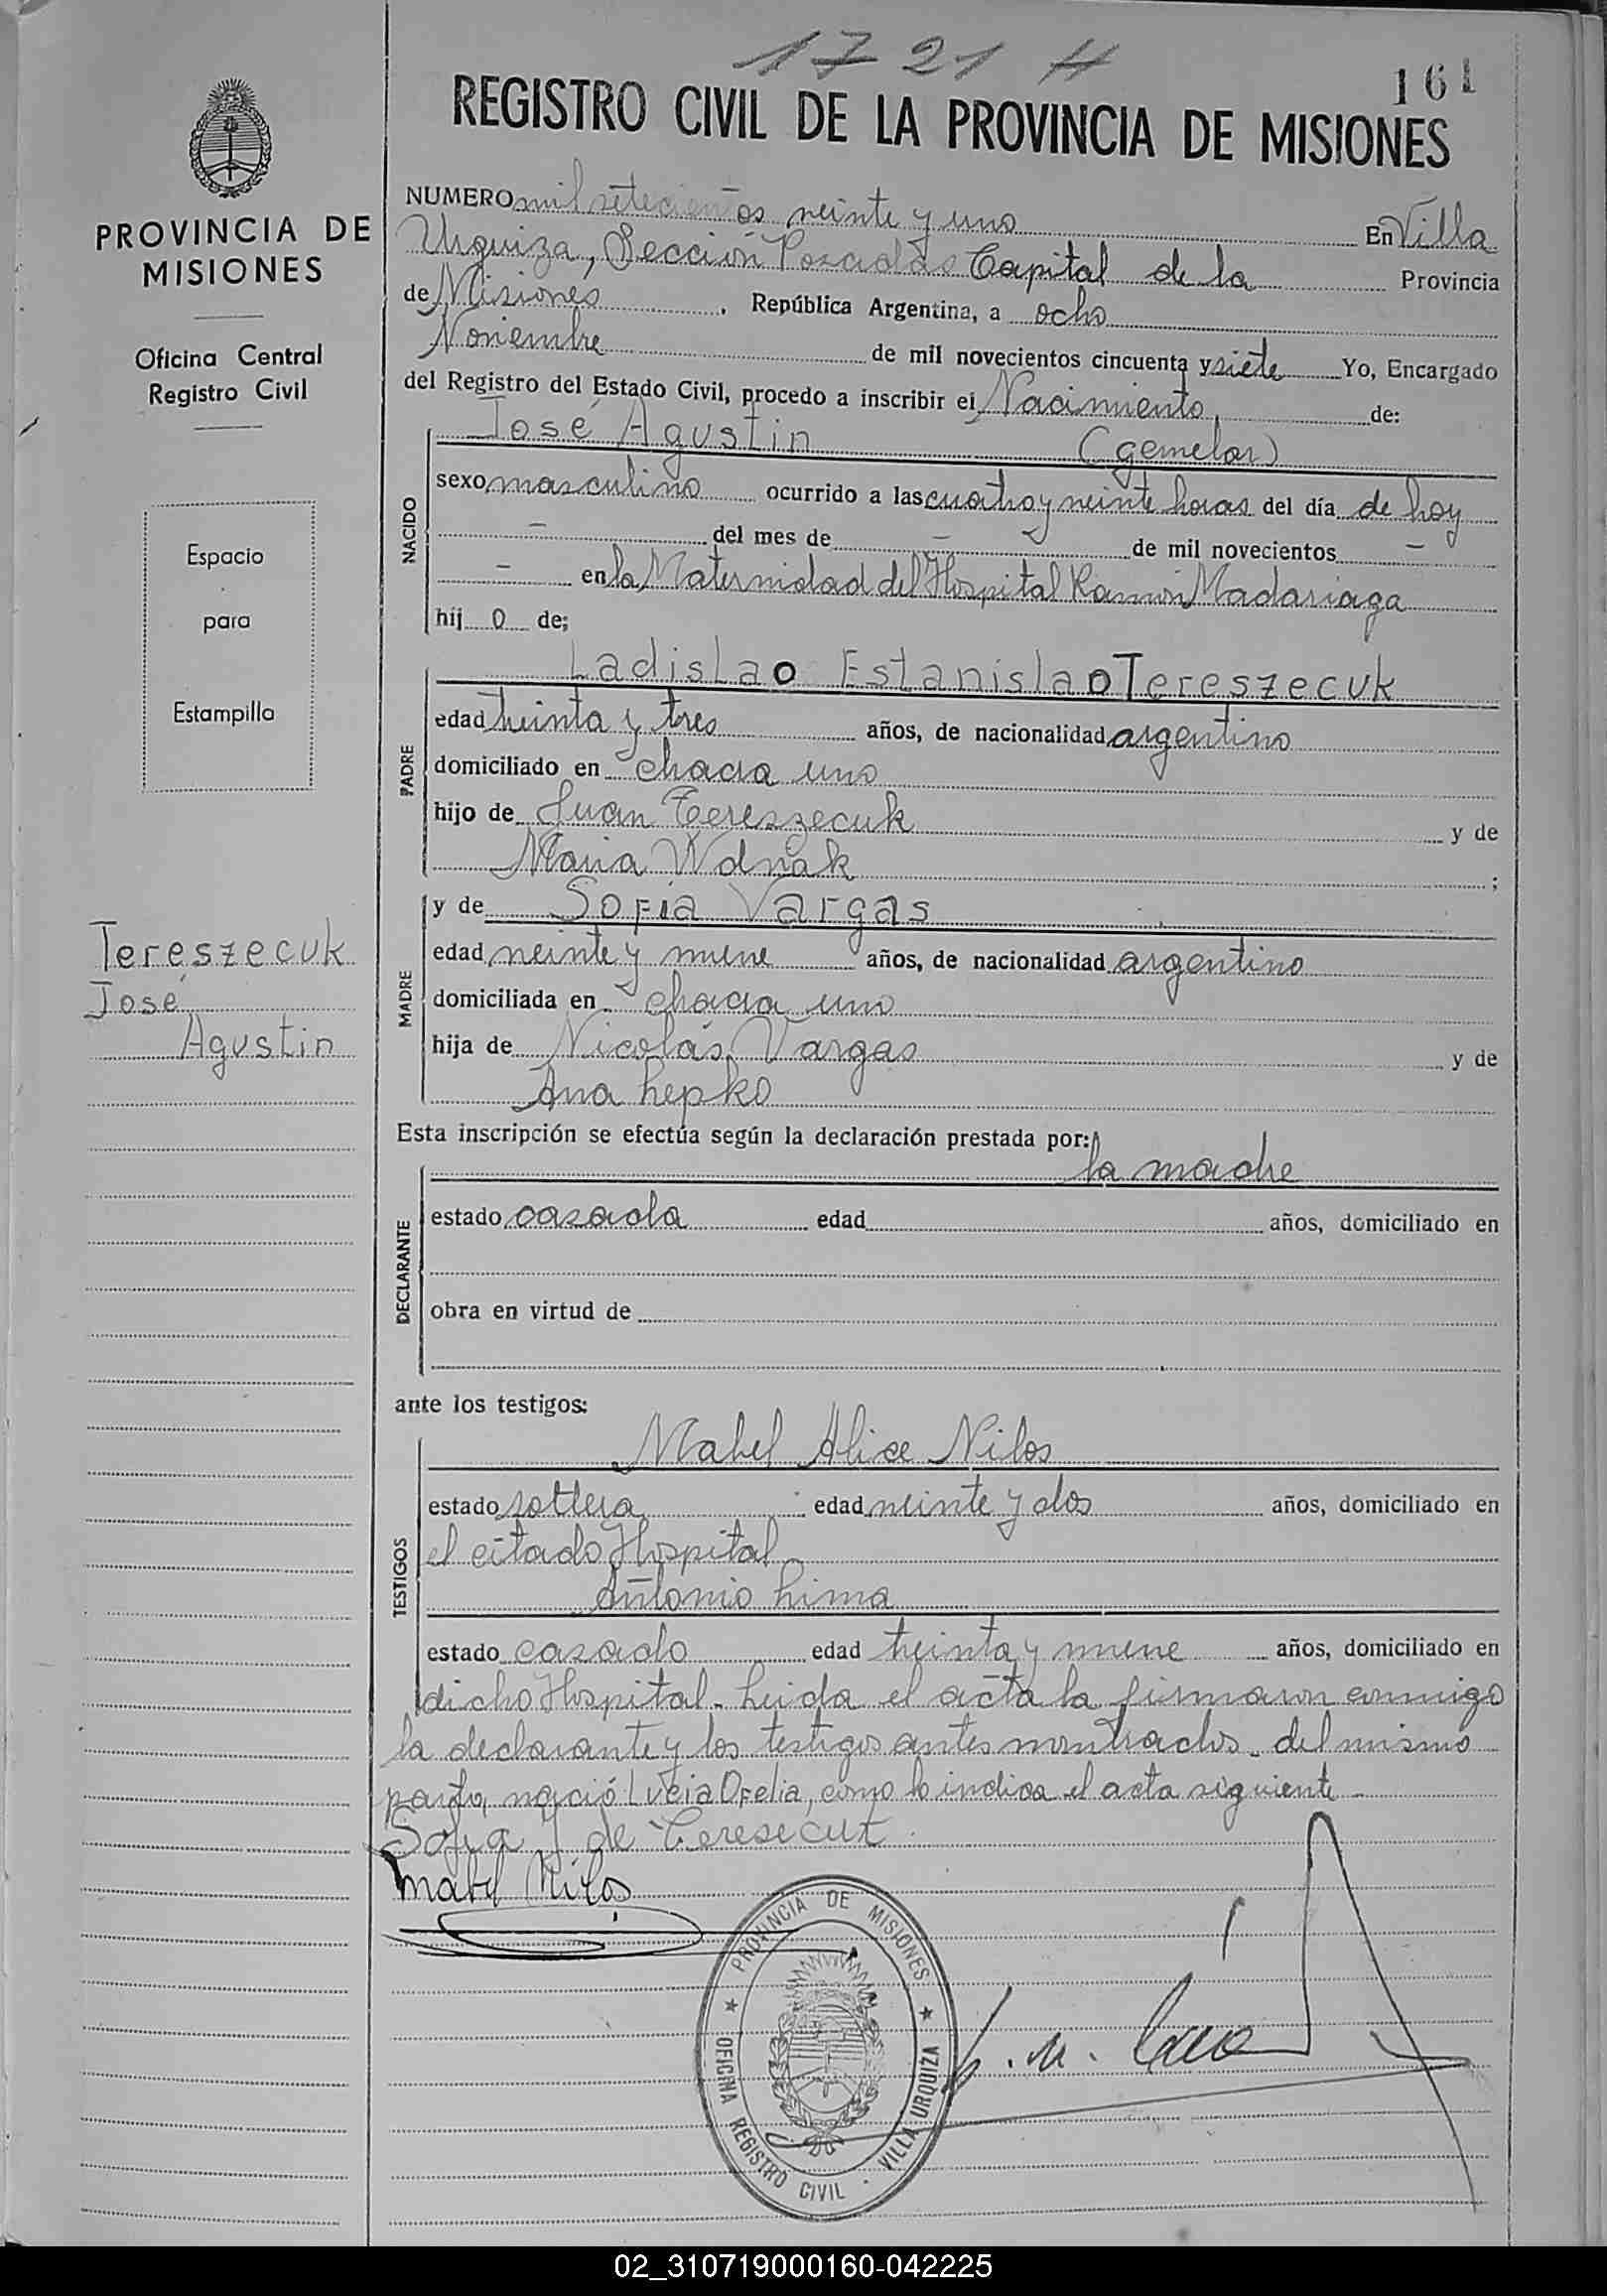 1721 H
161
REGISTRO CIVIL DE LA PROVINCIA DE MISIONES
PROVINCIA DE
MISIONES
Oficina Central
Registro Civil
Espacio
para
Estampilla
Tereszecuk
José
Agustin
NUMERO mil setecientos veinte y uno En Villa
Urquiza, Sección Posadas Capital de la Provincia
de Misiones, República Argentina, a ocho
Noviembre de mil novecientos cincuenta y siete Yo, Encargado
del Registro del Estado Civil, procedo a inscribir el Nacimiento, de:
José Agustin (gemelar)
NACIDO
sexo masculino ocurrido a las cuatro y veinte horas del día de hoy
- del mes de - de mil novecientos -
- en la Maternidad del Hospital Ramón Madariaga
hij o de;
Ladislao Estanislao Tereszecuk
PADRE
edad treinta y tres años, de nacionalidad argentino
domiciliado en chacra uno
hijo de Juan Tereszecuk y de
Maria Wdnak ;
y de Sofia Vargas
MADRE
edad veinte y nueve años, de nacionalidad argentino
domiciliada en chacra uno
hija de Nicolás Vargas y de
Ana Lepko
Esta inscripción se efectúa según la declaración prestada por:
la madre
DECLARANTE
estado casada edad años, domiciliado en
obra en virtud de
ante los testigos:
Mabel Alice Nilos
TESTIGOS
estado soltera edad veinte y dos años, domiciliado en
el citado Hospital
Antonio Lima
estado casado edad treinta y nueve años, domiciliado en
dicho Hospital. Leida el acta la firmaron conmigo
la declarante y los testigos antes nombrados. del mismo
parto, nació Lucia Ofelia, como lo indica el acta siguiente
Sofia de Teresecut
Mabel Nilos
PROVINCIA DE MISIONES
OFICINA REGISTRO CIVIL - VILLA URQUIZA
02_310719000160-042225